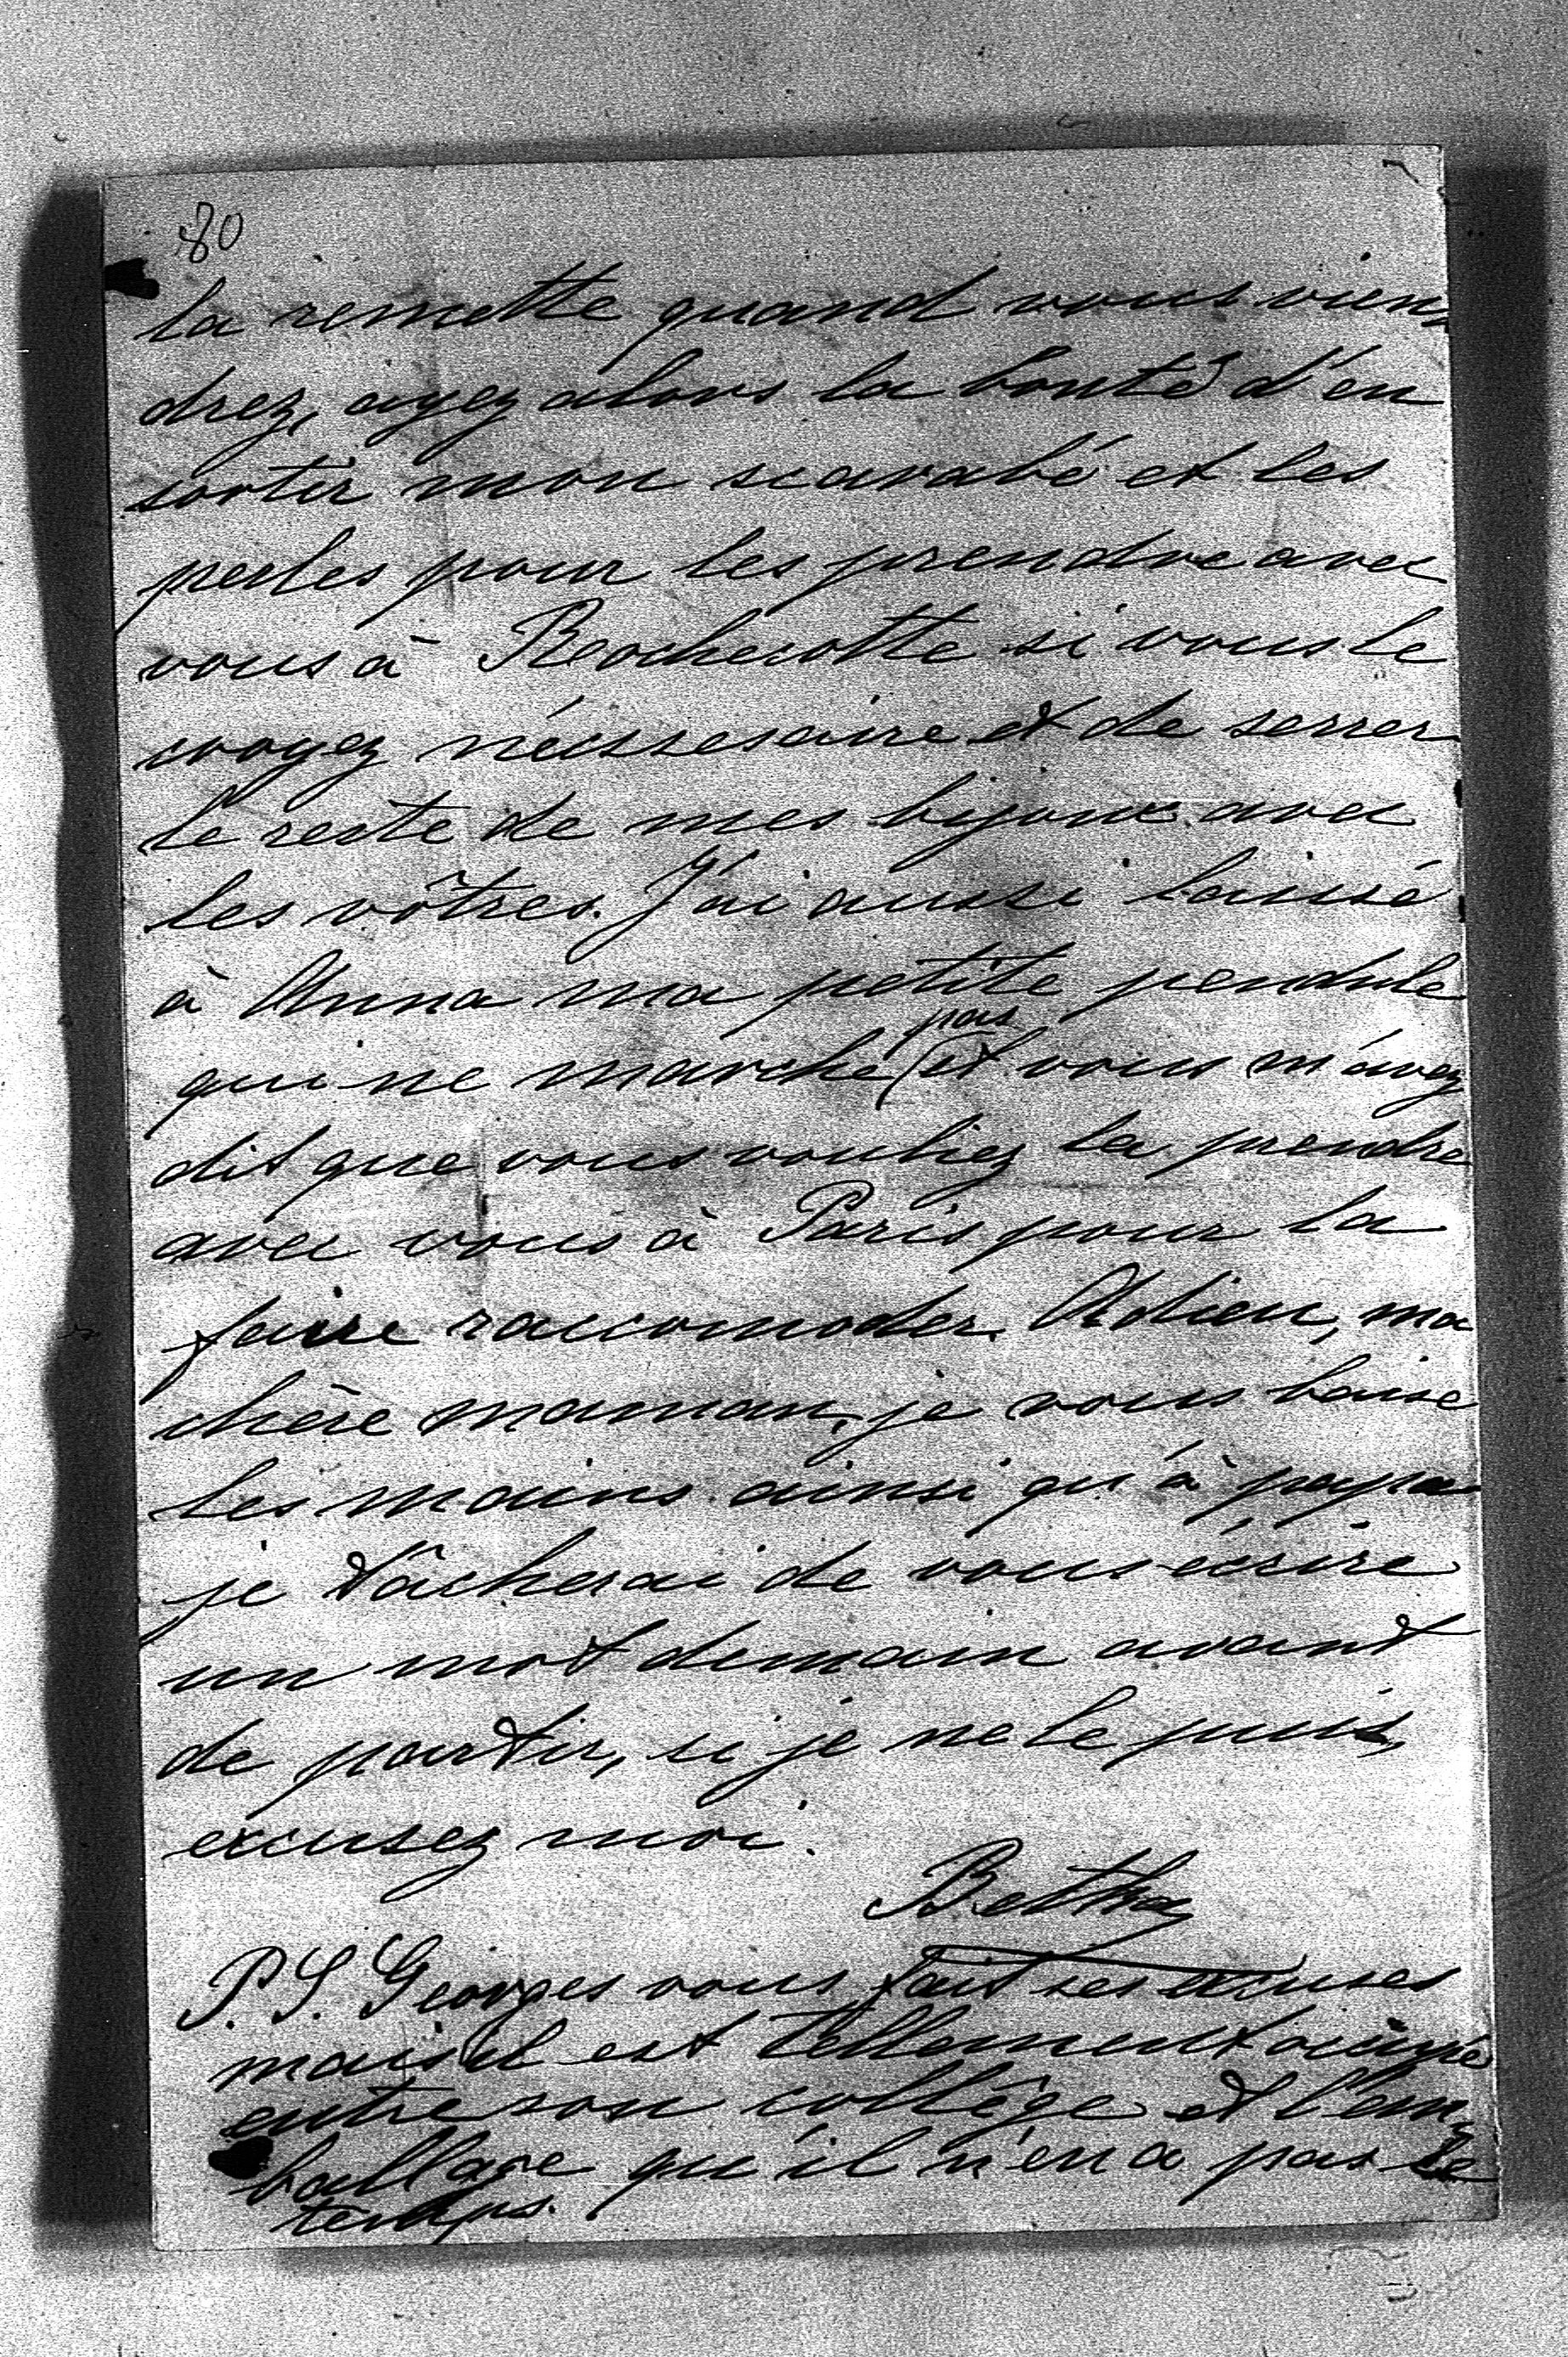 80
la remette quand vous vien-
drez, ayez alors la bonté d'en
sortir mon scarabé et les
perles pour les prendre avec
vous à Rochecotte si vous le
croyez nécessesaire et de serrer
le reste de mes bijoux avec
les vôtres. J'ai aussi laissé
à Anna ma petite pendule
qui ne marche pas et vous m'avez
dit que vous vouliez la prendre
avec vous à Paris pour la
faire raccomoder. Adieu, ma
chère maman, je vous baise
les mains ainsi qu'à papa
je tâcherai de vous écrire
un mot demain avant
de partir, si je ne le puis,
excusez moi.
Betka
P.S. Georges vous fait ses excuses
mais il est tellement occupé
entre son collège et l'em-
ballage qu'il n'en a pas le
temps.